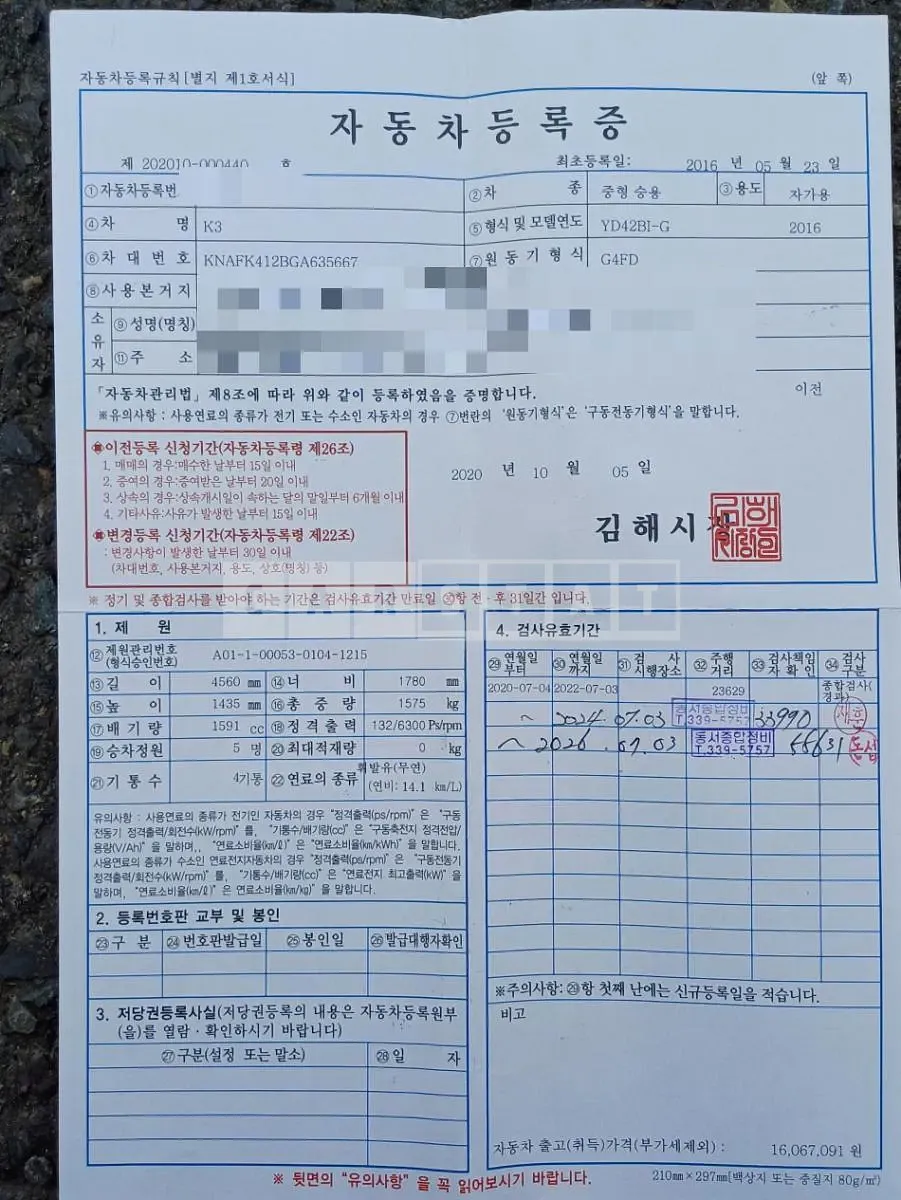 자동차등록규칙[별지 제1호서식]
(앞 쪽)
자동차등록증
제 202010-000440 호
최초등록일: 2016 년 05 월 23 일
①자동차등록번
②차 종 중형 승용 ③용도 자가용
④차 명 K3
⑤형식 및 모델연도 YD42BI-G 2016
⑥차 대 번 호 KNAFK412BGA635667
⑦원 동 기 형 식 G4FD
⑧사용본거지
소유자
⑨성명(명칭)
⑪주 소
「자동차관리법」제8조에 따라 위와 같이 등록하였음을 증명합니다.
이전
※유의사항 : 사용연료의 종류가 전기 또는 수소인 자동차의 경우 ⑦번란의 '원동기형식'은 '구동전동기형식'을 말합니다.
이전등록 신청기간(자동차등록령 제26조)
1. 매매의 경우:매수한 날부터 15일 이내
2. 증여의 경우:증여받은 날부터 20일 이내
3. 상속의 경우:상속개시일이 속하는 달의 말일부터 6개월 이내
4. 기타사유:사유가 발생한 날부터 15일 이내
변경등록 신청기간(자동차등록령 제22조)
: 변경사항이 발생한 날부터 30일 이내
(차대번호, 사용본거지, 용도, 상호(명칭) 등)
2020 년 10 월 05 일
김해시장
※ 정기 및 종합검사를 받아야 하는 기간은 검사유효기간 만료일 ㉚항 전·후 31일간 입니다.
1. 제 원
⑫제원관리번호 (형식승인번호) A01-1-00053-0104-1215
⑬길 이 4560 mm ⑭너 비 1780 mm
⑮높 이 1435 mm ⑯총 중 량 1575 kg
⑰배 기 량 1591 cc ⑱정격출력 132/6300 Ps/rpm
⑲승차정원 5 명 ⑳최대적재량 0 kg
㉑기 통 수 4기통 ㉒연료의 종류 휘발유(무연)
(연비: 14.1 km/L)
유의사항 : 사용연료의 종류가 전기인 자동차의 경우 "정격출력(ps/rpm)" 은 "구동
전동기 정격출력/회전수(kW/rpm)" 를, "기통수/배기량(cc)" 은 "구동축전지 정격전압/
용량(V/Ah)" 을 말하며,, "연료소비율(km/ℓ)" 은 "연료소비율(km/kWh)" 을 말합니다.
사용연료의 종류가 수소인 연료전지자동차의 경우 "정격출력(ps/rpm)" 은 "구동전동기
정격출력/회전수(kW/rpm)" 를, "기통수/배기량(cc)" 은 "연료전지 최고출력(kW)" 을
말하며, "연료소비율(km/ℓ)" 은 연료소비율(km/kg)" 을 말합니다.
2. 등록번호판 교부 및 봉인
㉓구 분 ㉔번호판발급일 ㉕봉인일 ㉖발급대행자확인
3. 저당권등록사실(저당권등록의 내용은 자동차등록원부
(을)를 열람·확인하시기 바랍니다)
㉗구분(설정 또는 말소) ㉘일 자
4. 검사유효기간
㉙연월일부터 ㉚연월일까지 ㉛검 사 시행장소 ㉜주행거리 ㉝검사책임자확인 ㉞검사구분
2020-07-04 2022-07-03 23629 종합검사(경과)
~ 2024.07.03 동서종합정비 T.339-5757 33990
~ 2026.07.03 동서종합정비 T.339-5757 55631
※주의사항: ㉙항 첫째 난에는 신규등록일을 적습니다.
비고
자동차 출고(취득)가격(부가세제외) : 16,067,091 원
※ 뒷면의 "유의사항" 을 꼭 읽어보시기 바랍니다.
210mm×297mm[백상지 또는 중질지 80g/㎡]